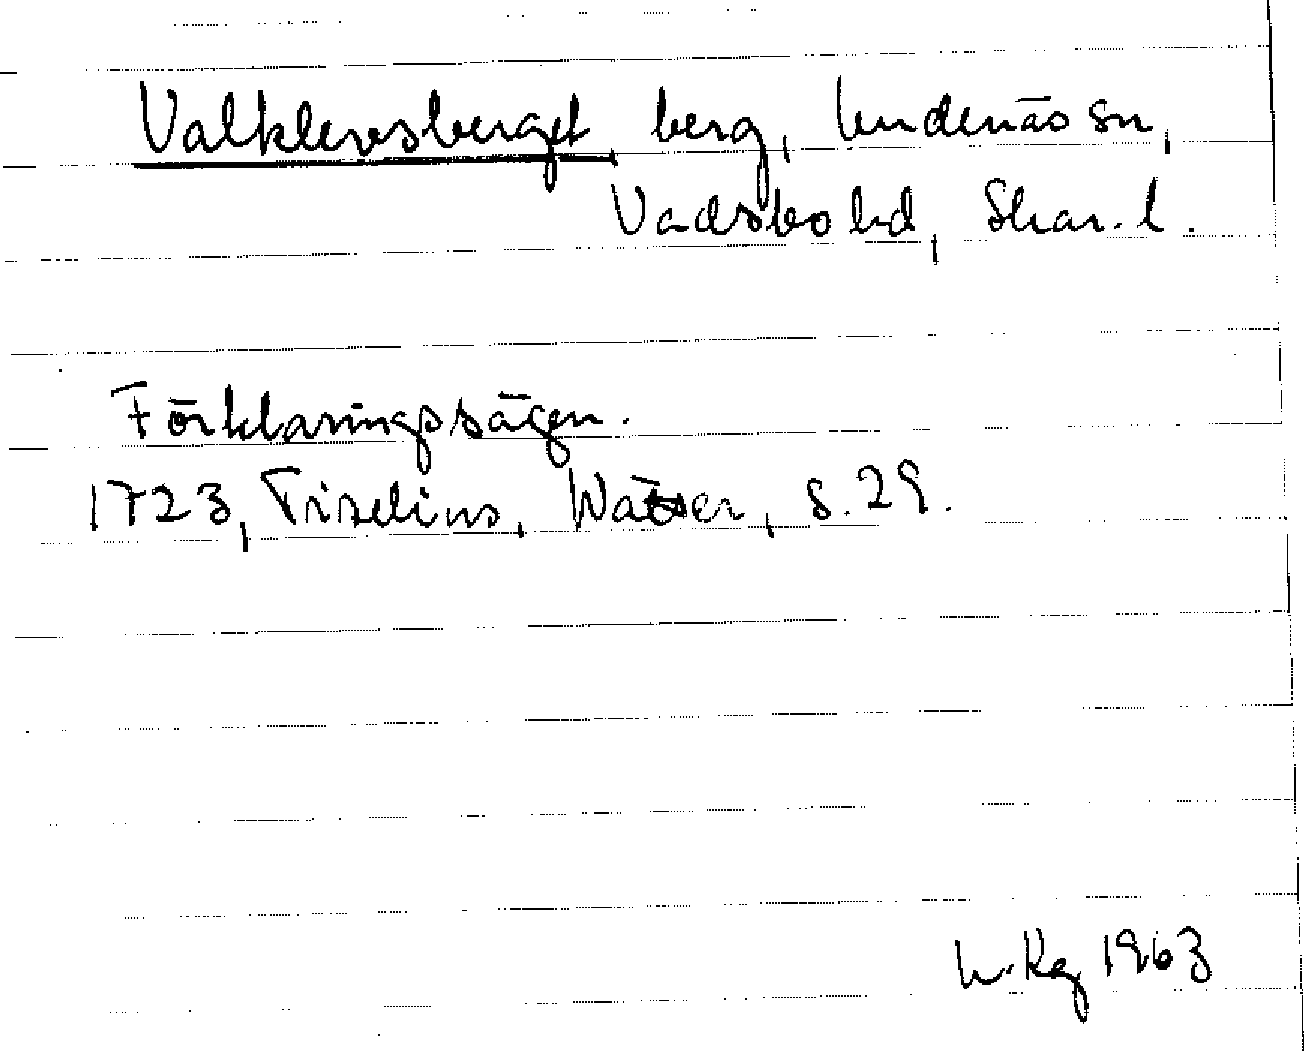 Valklevsberget berg, Undenäs sn,
Vadsbo hd, Skar. l.
Förklaringssägen.
1723, Tiselius, Wätter, s. 29.
W. Kg 1963